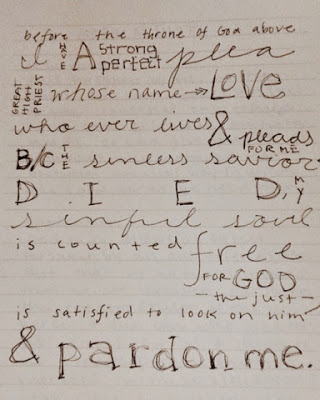 before the throne of God above
I HAVE A strong perfect plea
GREAT HIGH PRIEST whose name → LOVE
who ever lives & pleads FOR ME
B/C THE sinless savior
D.IED, MY
sinful soul
is counted free
FOR GOD
- the just -
is satisfied to look on him
& pardon me.